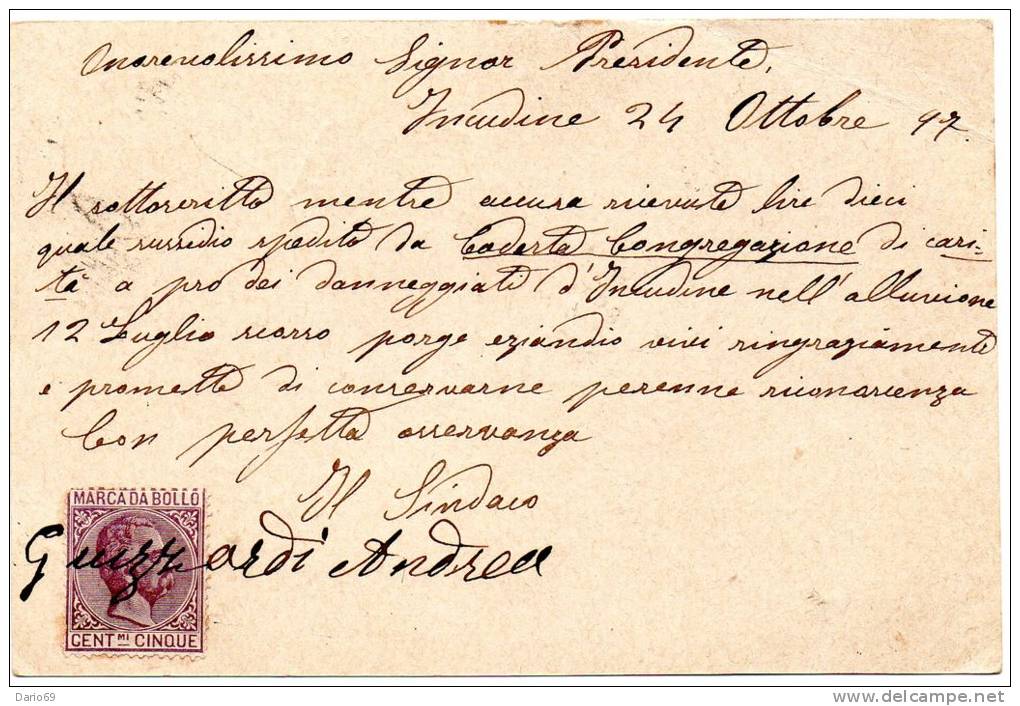 Onorevolissimo Signor Presidente,
Incudine 24 Ottobre 97.
Il sottoscritto mentre accusa ricevute lire dieci
quale sussidio spedito da Codesta Congregazione di cari-
tà a pro dei danneggiati d'Incudine nell'alluvione
12 Luglio scorso porge eziandio vivi ringraziamenti
e promette di conservarne perenne riconoscenza
Con perfetta osservanza
Il Sindaco
Guizzardi Andrea
MARCA DA BOLLO
CENT.MI CINQUE
Dario69
http://www.delcampe.net